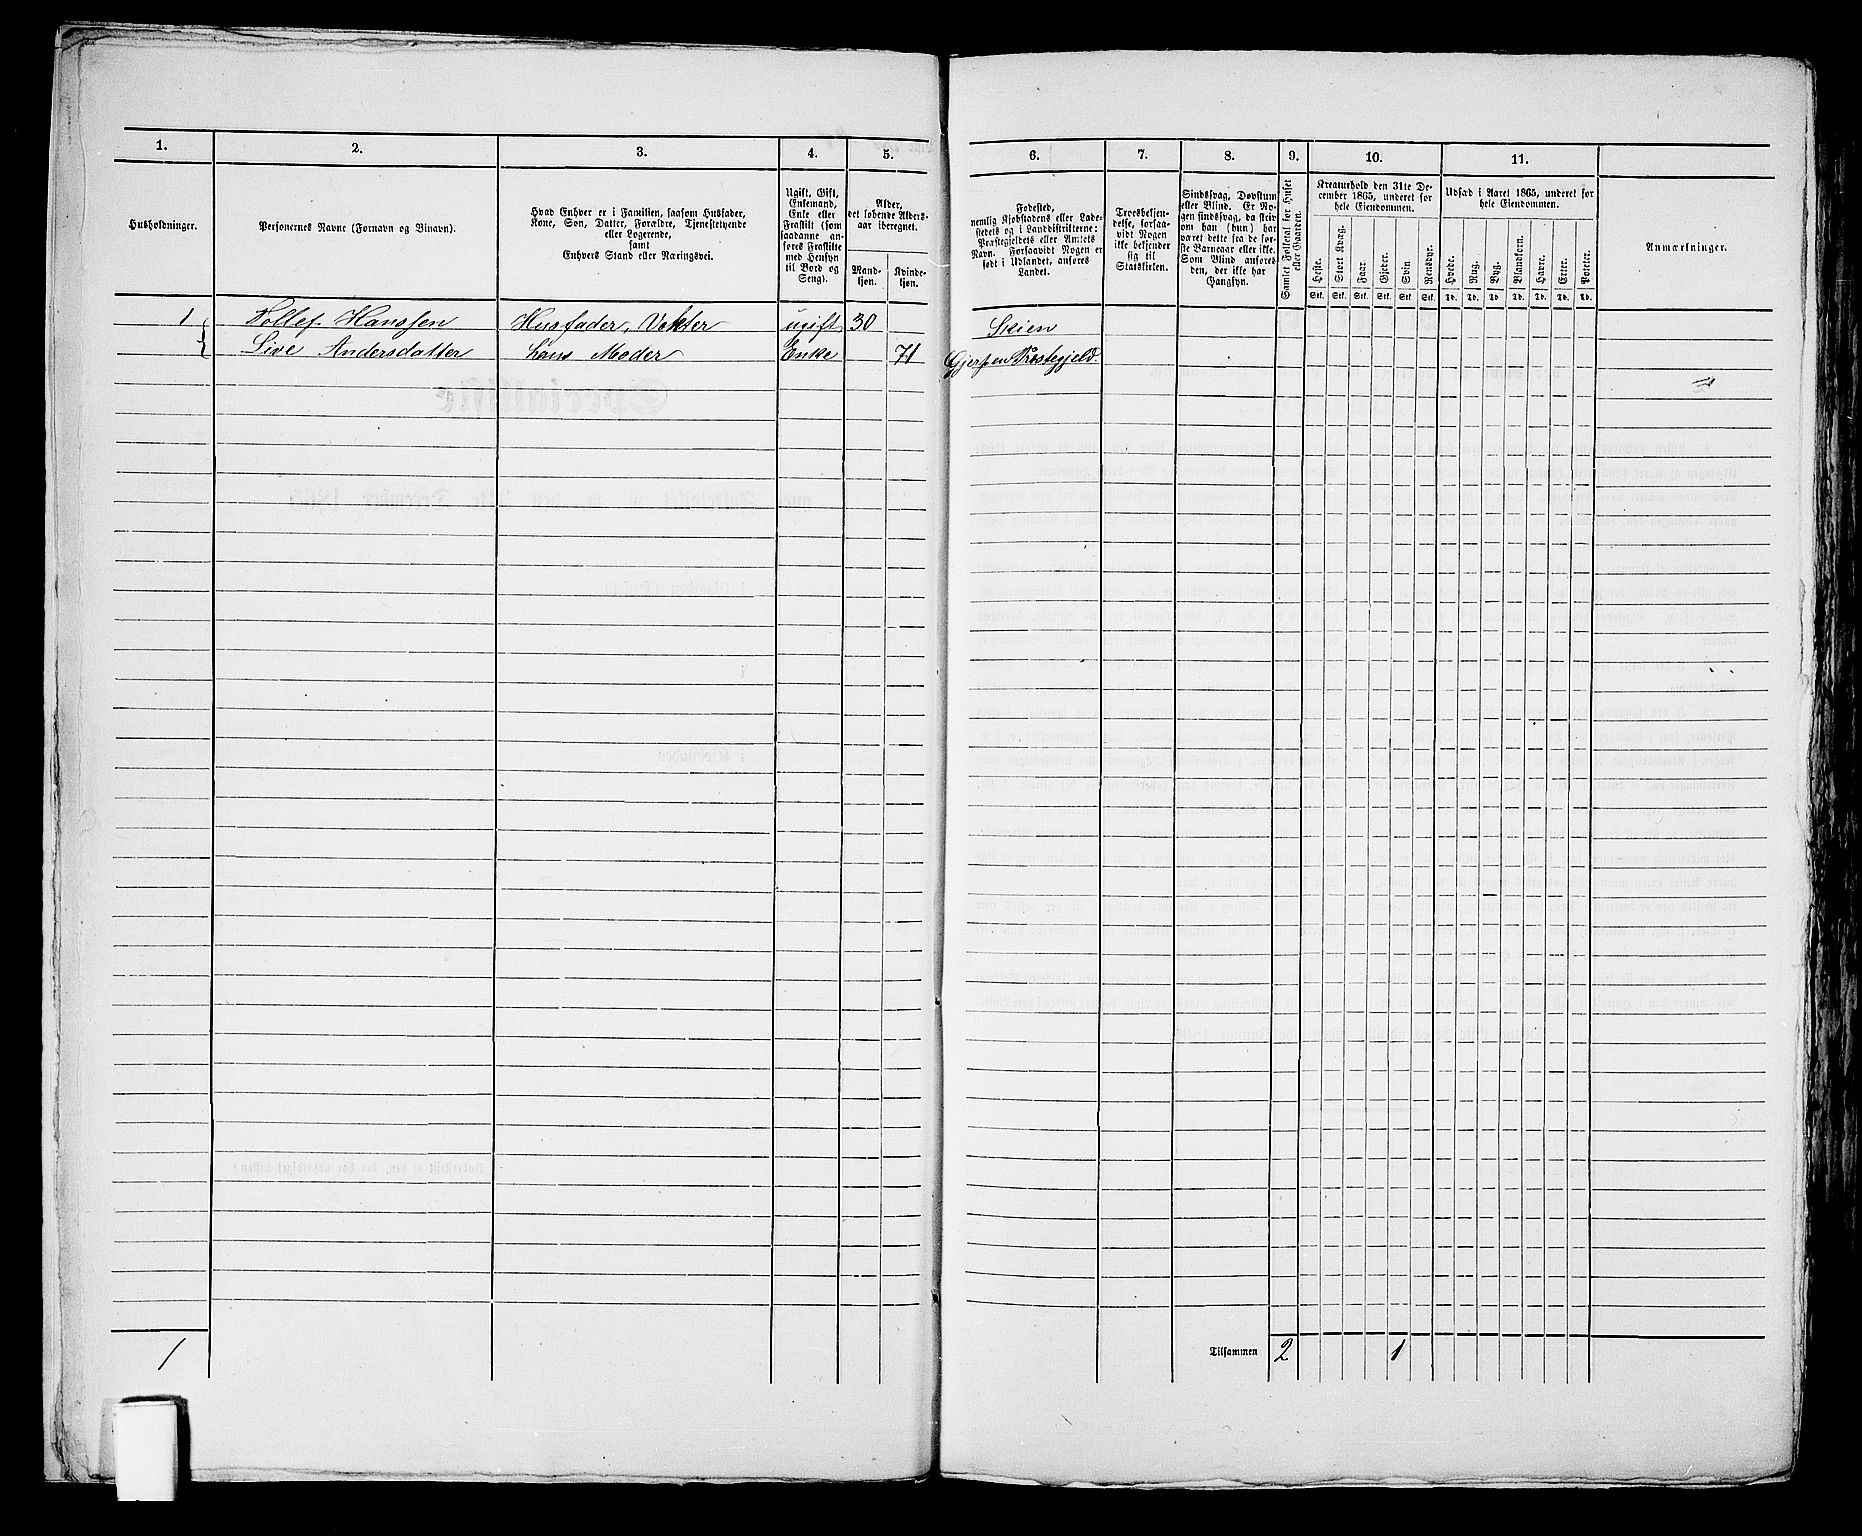 1. 2. 3. 4. 5. 6. 7. 8. 9. 10. 11.
Husholdninger.
Personernes Navne (Fornavn og Binavn).
Hvad Enhver er i Familien, saasom Husfader,
Kone, Søn, Datter, Forældre, Tjenestetyende
eller Logerende,
samt
Enhvers Stand eller Næringsvei.
Ugift, Gift,
Enkemand,
Enke eller
Fraskilt (som
saadanne an-
føres Fraskilte
med Hensyn
til Bord og
Seng).
Alder,
det løbende Alders-
aar iberegnet.
Mand-
kjøn.
Kvinde-
kjøn.
Fødested,
nemlig Kjøbstadens eller Lade-
stedets og i Landdistrikterne:
Præstegjeldets eller Amtets
Navn. Forsaavidt Nogen er
født i Udlandet, anføres
Landet.
Troesbekjen-
delse, forsaa-
vidt Nogen
ikke bekjender
sig til
Statskirken.
Sindssvag, Døvstum
eller Blind. Er No-
gen sindssvag, da skriv
om han (hun) har
været dette fra de før-
ste Barneaar eller ikke.
Som Blind anføres
den, der ikke har
Gangsyn.
Samlet Folketal for Huset
eller Gaarden.
Kreaturhold den 31te De-
cember 1865, underet for
hele Eiendommen.
Heste. Stort Kvæg. Faar. Gjeder. Svin Rensdyr.
Stk. Stk. Stk. Stk. Stk. Stk.
Udsæd i Aaret 1865, underet for
hele Eiendommen.
Hvede. Rug. Byg. Blandkorn. Havre. Erter. Poteter.
Td. Td. Td. Td. Td. Td. Td.
Anmærkninger.
1 Tollef Hanssen Husfader, Vekter ugift 30 Skien
Live Andersdatter hans Moder Enke 71 Gjerpen Præstegjeld.
1 Tilsammen 2 1